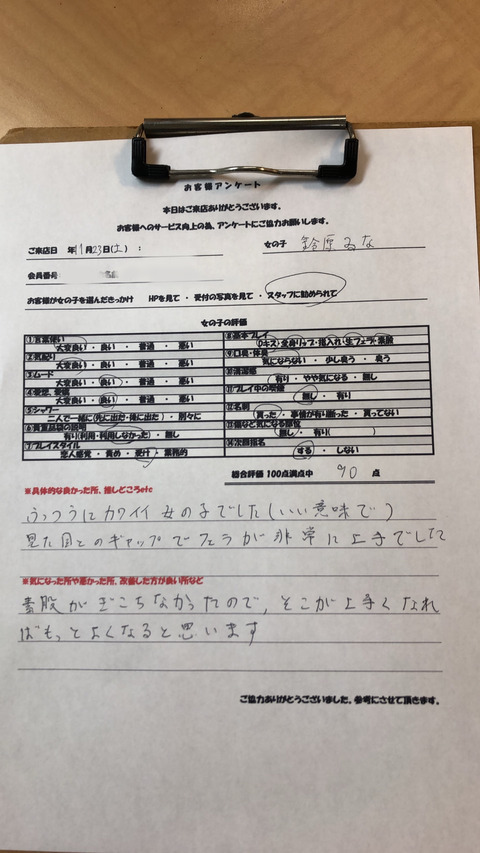 お客様アンケート
本日はご来店ありがとうございます。
お客様へのサービス向上の為、アンケートにご協力お願いします。
ご来店日 年11月23日(土) : 女の子 鈴原るな
会員番号
お客様が女の子を選んだきっかけ HPを見て ・ 受付の写真を見て ・ スタッフに勧められて
女の子の評価
①言葉使い
大変良い ・ 良い ・ 普通 ・ 悪い
②気配り
大変良い ・ 良い ・ 普通 ・ 悪い
③ムード
大変良い ・ 良い ・ 普通 ・ 悪い
④愛想、愛嬌
大変良い ・ 良い ・ 普通 ・ 悪い
⑤シャワー
二人で一緒に(先に出た・後に出た) ・ 別々に
⑥貴重品袋の説明
有り(利用・利用しなかった) ・ 無し
⑦プレイスタイル
恋人感覚 ・ 責め ・ 受け ・ 業務的
⑧基本プレイ
Dキス・全身リップ・指入れ・生フェラ・素股
⑨口臭・体臭
気にならない ・ 少し臭う ・ 臭う
⑩清潔感
有り ・ やや気になる ・ 無し
⑪プレイ中の喫煙
無し ・ 有り
⑫名刺
貰った ・ 事情が有り断った ・ 貰ってない
⑬傷など気になる部位
無し ・ 有り( )
⑭次回指名
する ・ しない
総合評価 100点満点中 90 点
※具体的な良かった所、推しどころetc
ふつうにカワイイ女の子でした(いい意味で)
見た目とのギャップでフェラが非常に上手でした
※気になった所や悪かった所、改善した方が良い所など
素股がぎこちなかったので、そこが上手くなれ
ばもっとよくなると思います
ご協力ありがとうございました。参考にさせて頂きます。